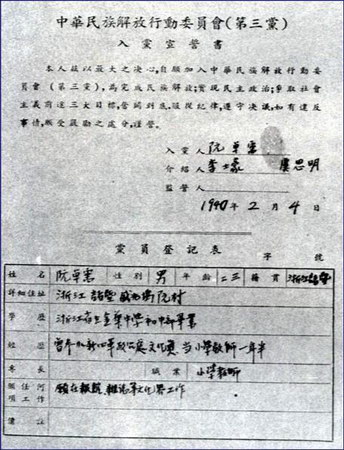 中華民族解放行動委員會(第三黨)
入黨宣誓書
本人茲以最大之決心,自願加入中華民族解放行動委
員會(第三黨),為完成民族解放,實現民主政治,爭取社會
主義前途三大目標,奮鬥到底,服從紀律,遵守决議,如有違反
事情,願受嚴厲之處分,謹誓。
入黨人 阮卓憲
介紹人 虞思明
監督人
1940年2月4日
黨員登記表
字 號
姓名 阮卓憲 性別 男 年齡 二三 籍貫 浙江諸暨
詳細住址 浙江諸暨 阮村
學歷 浙江省立金華中學初中部畢業
經歷 曾參加新四軍政 文化 當小學教師一年半
專長 職業 小學教師
願任何項工作 願在報館 雜誌等文化界工作
備註